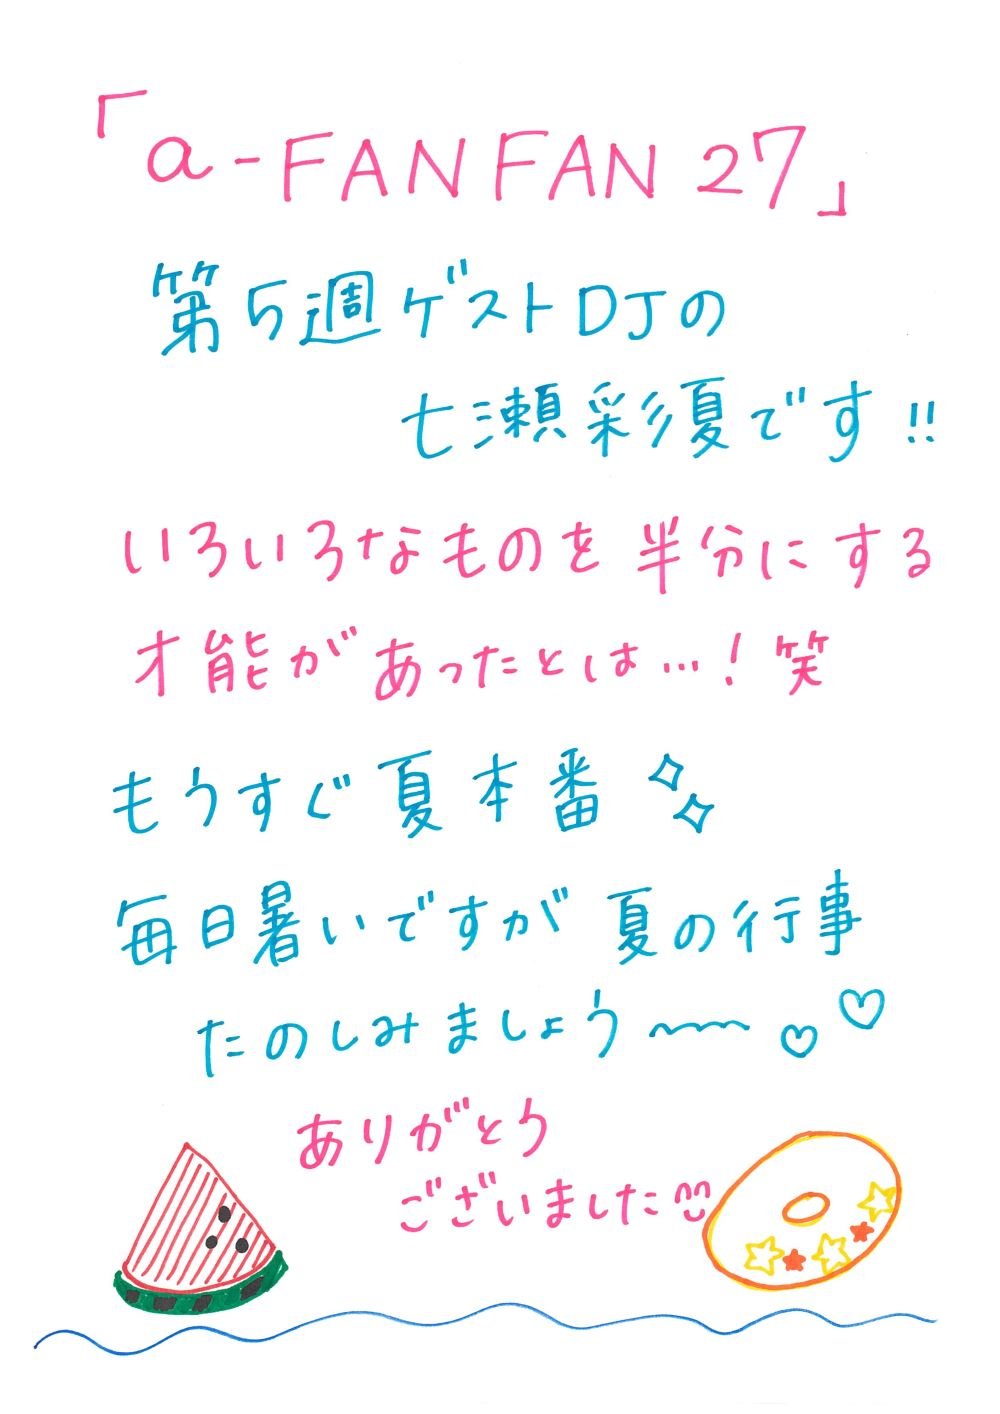 「a-FANFAN 27」
第5週ゲストDJの
七瀬彩夏です!!
いろいろなものを半分にする
才能があったとは…!笑
もうすぐ夏本番
毎日暑いですが夏の行事
たのしみましょう〜
ありがとう
ございました